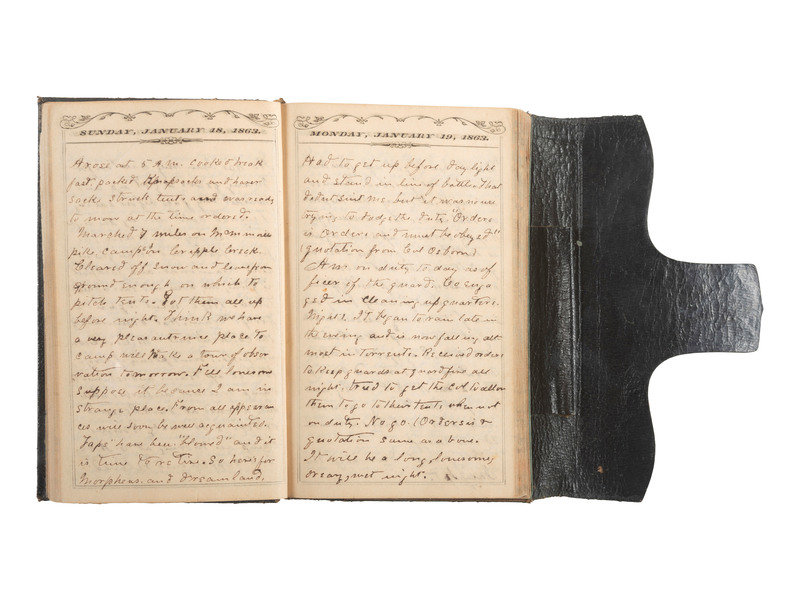 SUNDAY, JANUARY 18, 1863.
Arose at 5 A.M. cooked break
fast, packed Knapsacks and haver
sacks struck tents and was ready
to move at the time ordered.
Marched 7 miles on
pike. Camp on Cripple Creek.
Cleared off snow and
ground enough on which to
pitch tents. Got them all up
before night. Think we have
a very pleasant nice place to
camp will take a tour of obser
vation tomorrow. Feel lonesome
suppose it because I am in
strange place. From all appearan
ces will soon be well acquainted.
Taps have been "blowed" and it
is time to retire. So here's for
Morpheus and dreamland.
MONDAY, JANUARY 19, 1863.
Had to get up before day light
and stand in line of battle. That
didnt suit me but it was no use
trying to dodge the duty "Orders
is orders and must be obeyed"
(quotation from Col Osborn)
Am on duty to day as of
ficer of the guard. Co enga
ged in cleaning up quarters.
Night. It began to rain late in
the evening and is now falling all
most in torrents. Received orders
to keep guards at guard fire all
night. tried to get the Col to allow
them to go to their tents when not
on duty. No go. (Orders is &
quotation same as above.
It will be a long, lonesome,
dreary, wet night.